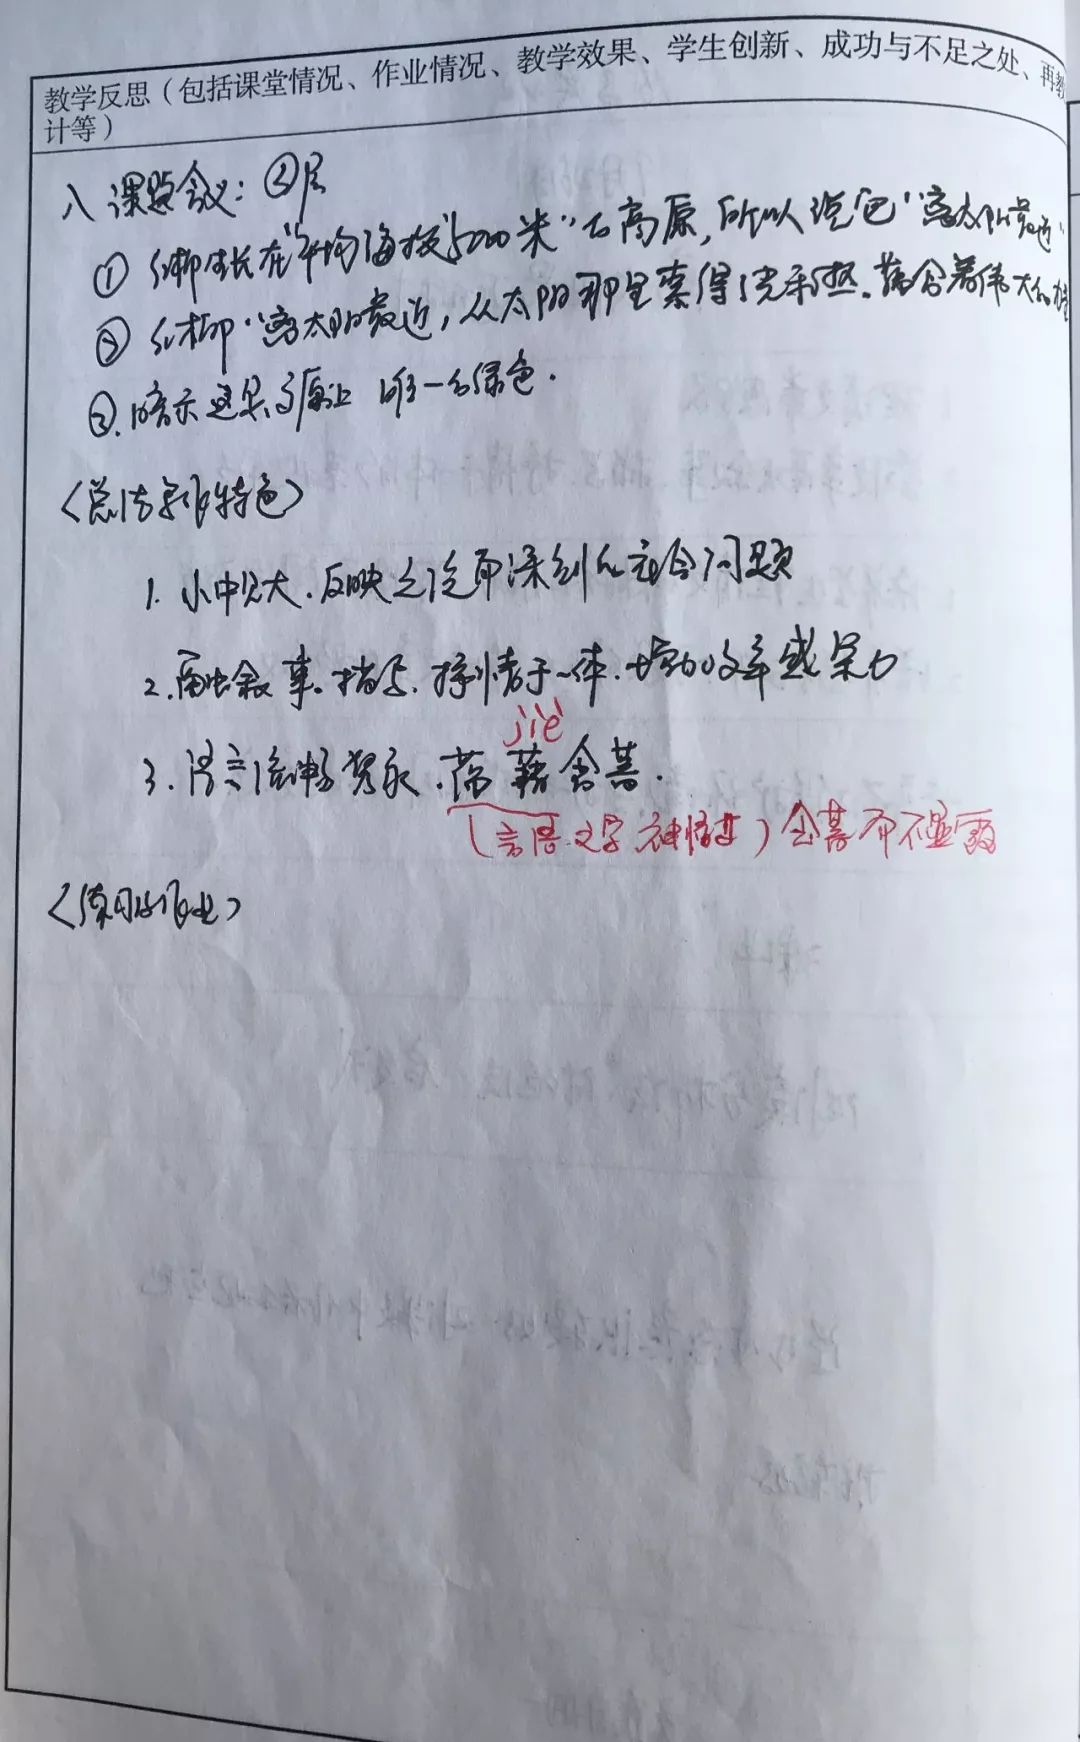 教学反思（包括课堂情况、作业情况、教学效果、学生创新、成功与不足之处、再教
计等）
八 课题含义：②层
① 红柳生长在"平均海拔5000米"的高原，所以说它"离太阳最近"
② 红柳"离太阳最近，从太阳那里索得了光和热．蕴含着伟大的
③．暗示这是高原上唯一的绿色．
〈总结写作特色〉
1．小中见大．反映之后而深刻的社会问题
2．融叙事．描写．抒情于一体．增加文章感染力
jiè
3．语言流畅隽永．蕴藉含蓄．
（言语．文字．神情等）含蓄而不显露
〈练习与作业〉